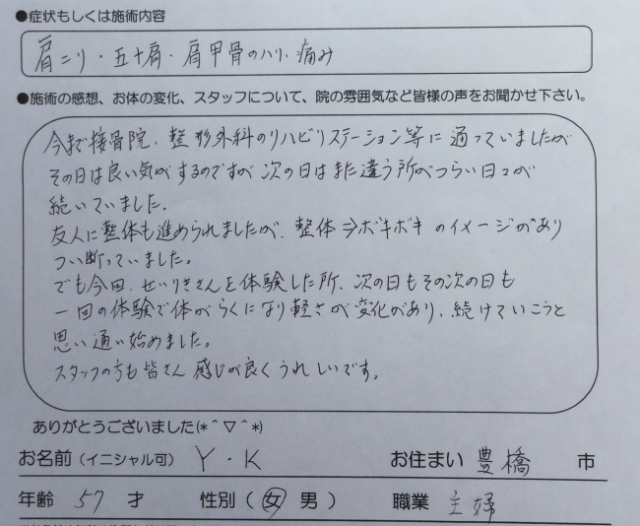 ●症状もしくは施術内容
肩こり・五十肩・肩甲骨のハリ・痛み
●施術の感想、お体の変化、スタッフについて、院の雰囲気など皆様の声をお聞かせ下さい。
今まで接骨院、整形外科のリハビリステーション等に通っていましたが
その日は良い気がするのですが次の日はまた違う所がつらい日々が
続いていました。
友人に整体も進められましたが、整体⇒ボキボキのイメージがあり
つい断っていました。
でも今回、せいりきさんを体験した所、次の日もその次の日も
一回の体験で体がらくになり軽さが変化があり、続けていこうと
思い通い始めました。
スタッフの方も皆さん感じが良くうれしいです。
ありがとうございました(*^▽^*)
お名前（イニシャル可） Y・K お住まい 豊橋 市
年齢 57 才 性別（女 男） 職業 主婦